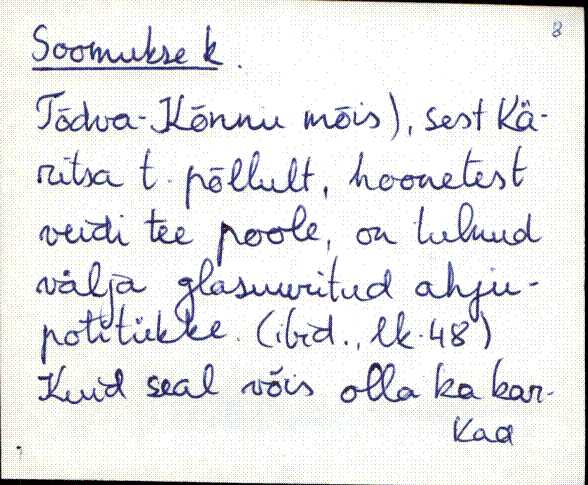 8
Soomukse k.
Tõdva-Kõnnu mõis), sest Kä-
ritsa t. põllult, hoonetest
veidi tee poole, on tulnud
välja glasuuritud ahju-
potitükke. (ibid., lk. 48)
Kuid seal võis olla ka kar-